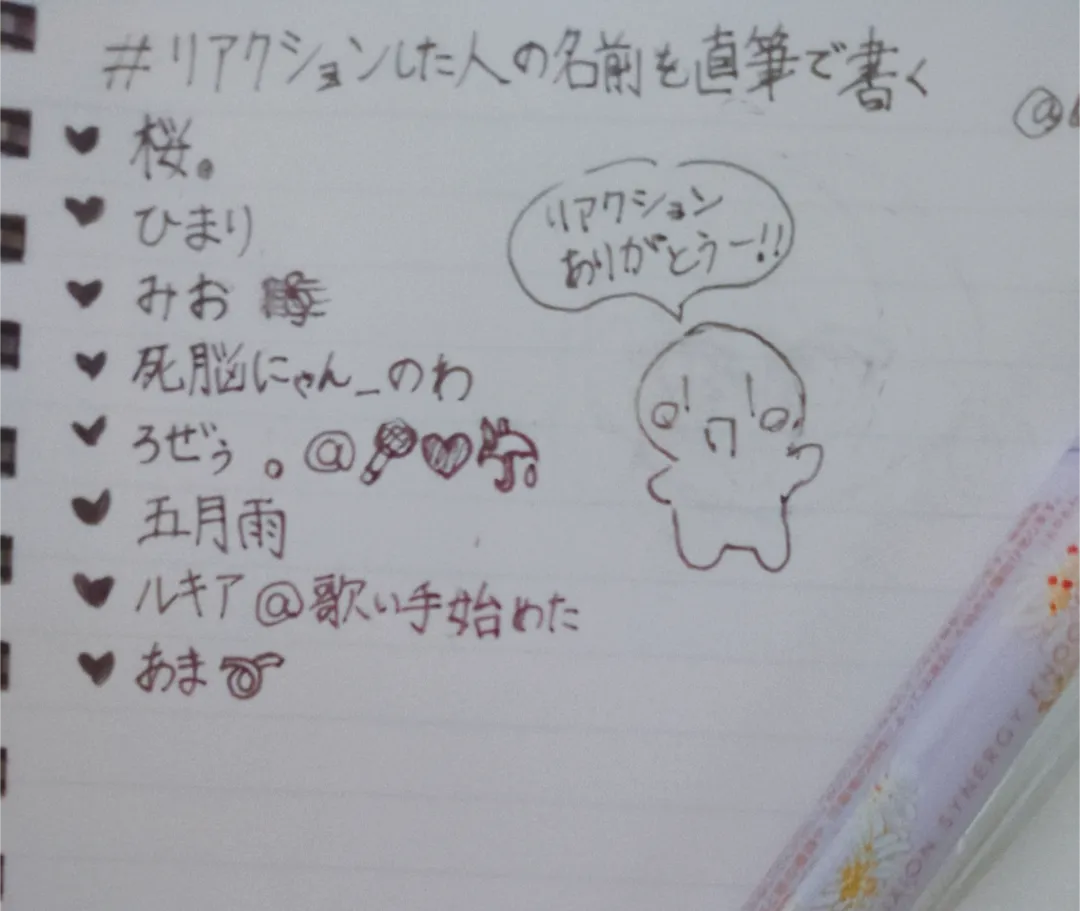 #リアクションした人の名前を直筆で書く
@
♥ 桜。
♥ ひまり
♥ みお
♥ 死脳にゃん_のわ
♥ ろぜぅ。@🎤♥☔
♥ 五月雨
♥ ルキア@歌い手始めた
♥ あま➰
リアクション
ありがとうー!!
SYNERGY